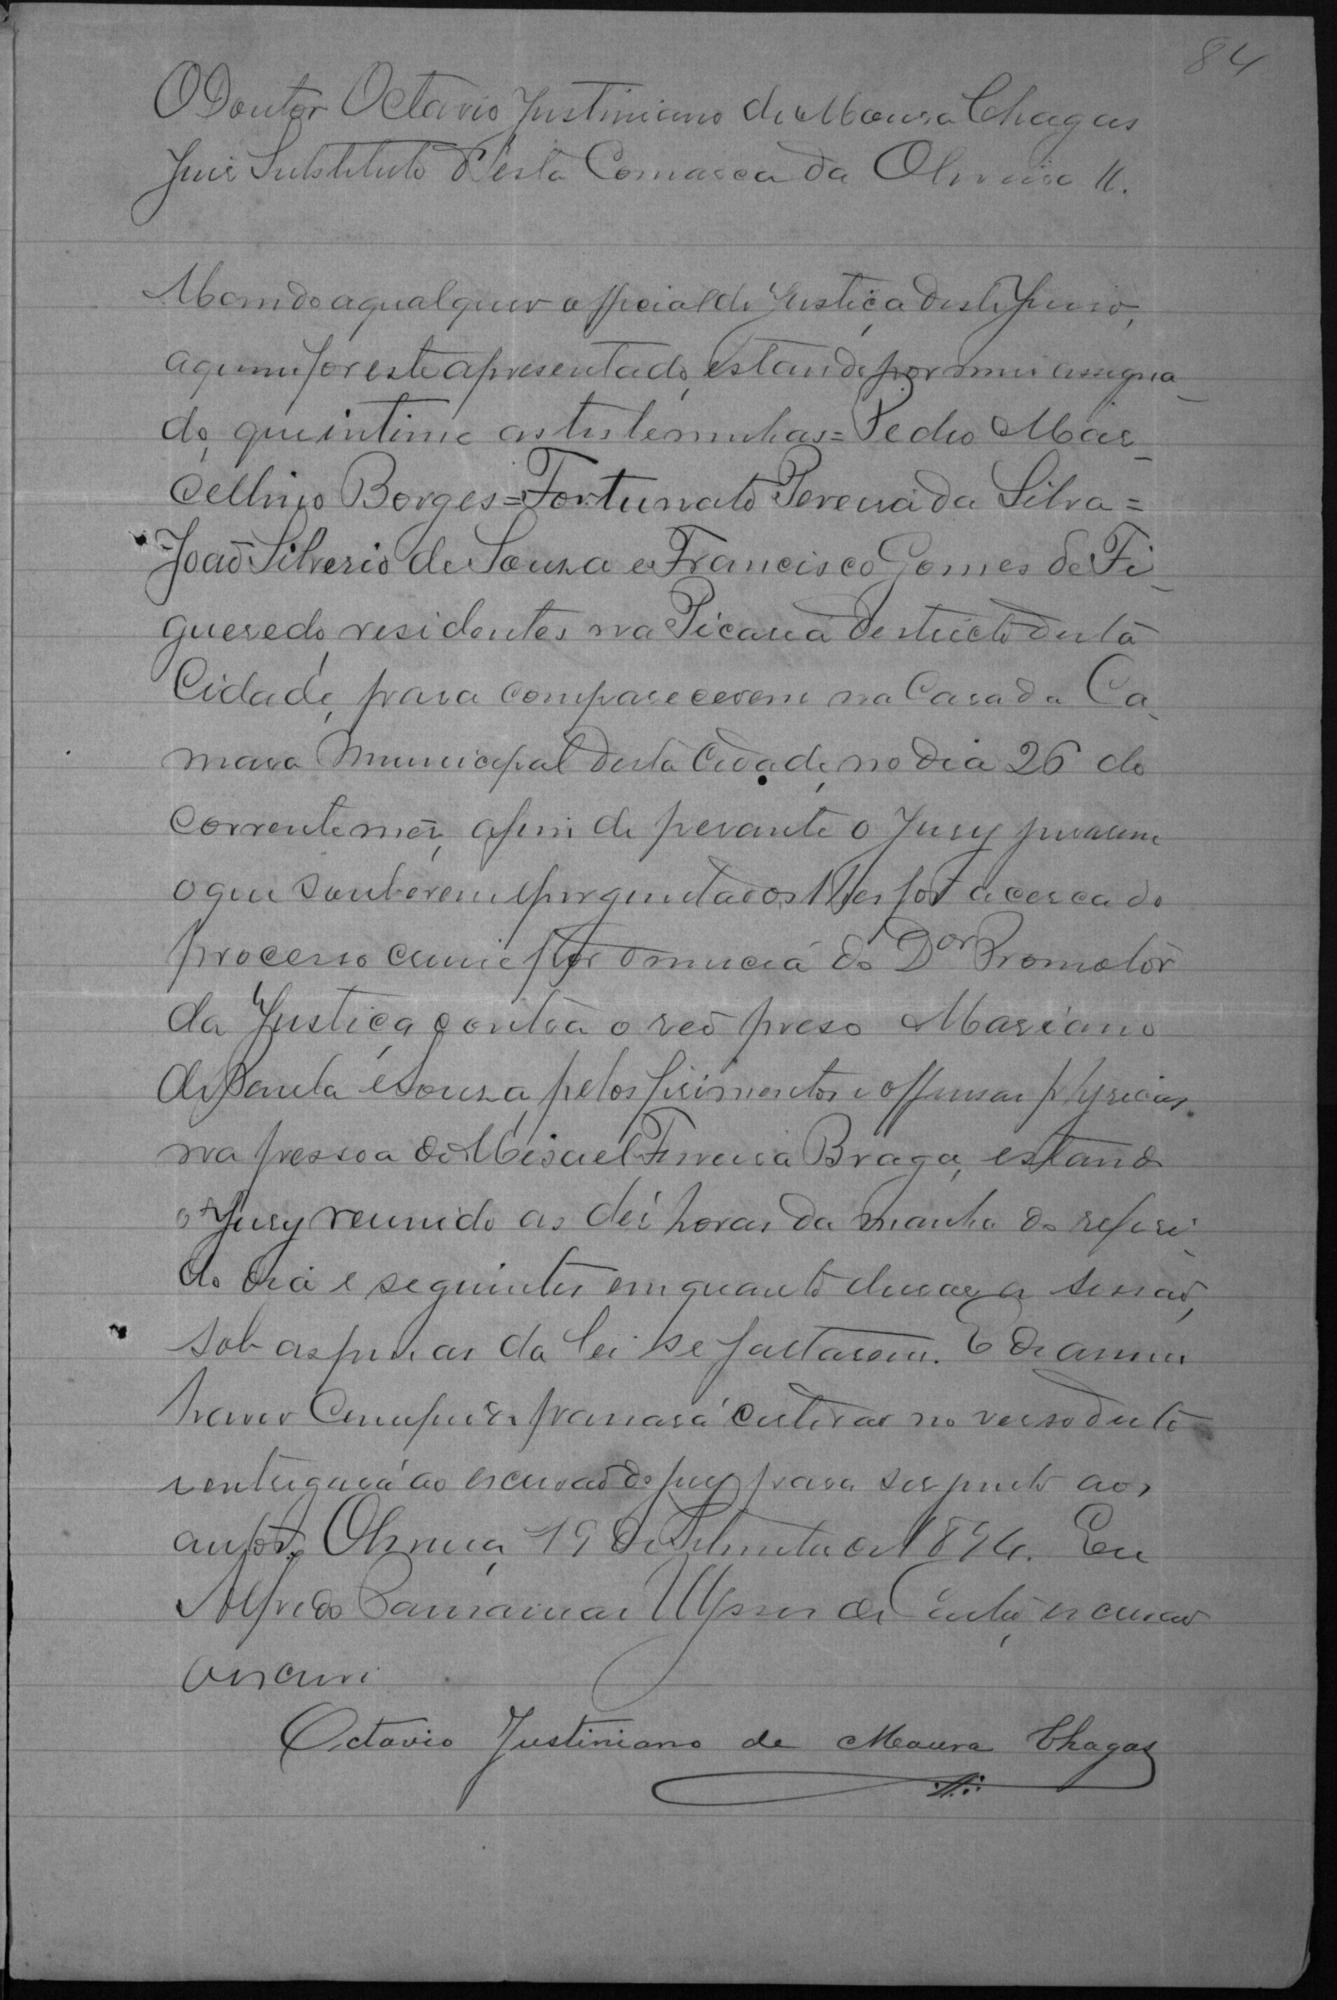 84
O Doutor Octavio Justiniano de Moura Chagas
Juis Substituto d'esta Comarca da Oliveira &.
Mando a qualquer official de Justiça deste Juiso,
a quem for este apresentado, estando por mim assigna-
do, que intime as testemunhas = Pedro Mar-
cellino Borges = Fortunato Pereira da Silva =
João Silverio de Souza e Francisco Gomes de Fi-
gueredo, residentes na Picaria destricto desta
Cidade, para comparecerem na Casa da Ca-
mara Municipal desta Cidade, no dia 26 do
corrente mês, afim de perante o Jury jurarem
o que souberem e perguntados lhes for acerca do
processo crime por denuncia do Dor Promotor
da Justiça contra o reo preso Mariano
de Paula e Souza, pelos ferimentos e offensas physicas
na pessoa de Misael Ferreira Braga, estando
o Jury reunido as dés horas da manha do referi-
do dia e seguintes emquanto durar a sessão,
sob as penas da lei se faltarem. E de assim
haver Cumpra passará certidão no verso deste
e entregará ao escrivão do jury para ser junto aos
autos. Oliveira, 19 de Setembro de 1894. Eu
Alfredo Ulysses de escrivão
o escrevi.
Octavio Justiniano de Moura Chagas